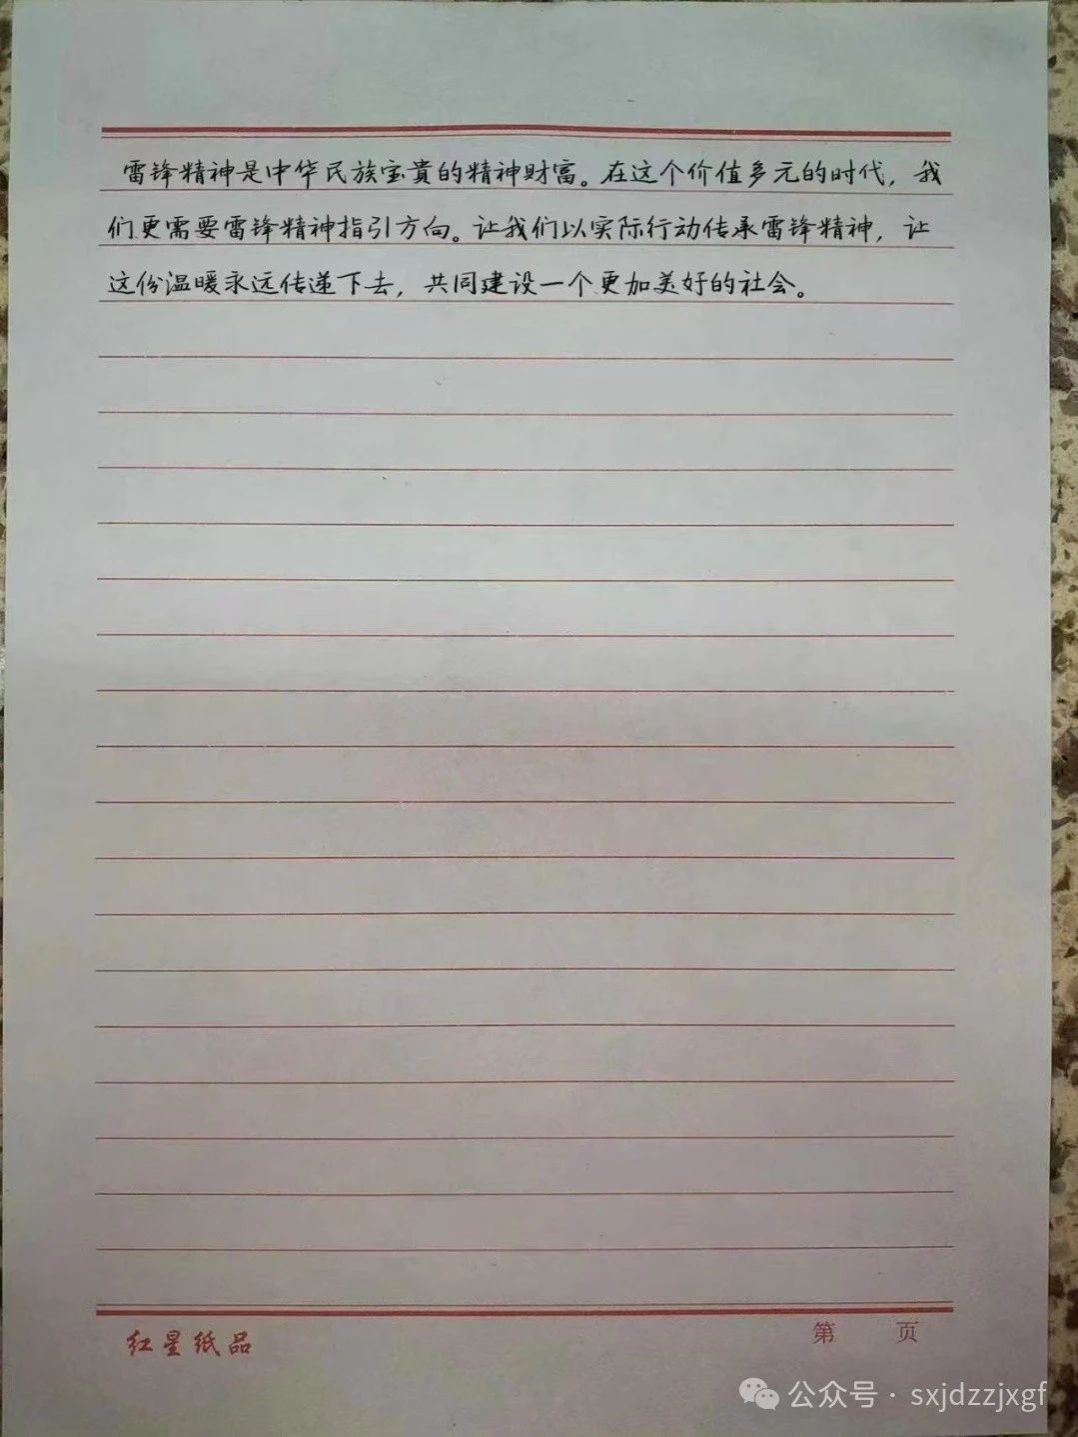 雷锋精神是中华民族宝贵的精神财富。在这个价值多元的时代，我
们更需要雷锋精神指引方向。让我们以实际行动传承雷锋精神，让
这份温暖永远传递下去，共同建设一个更加美好的社会。
红星纸品
第 页
公众号 · sxjdzzjxgf